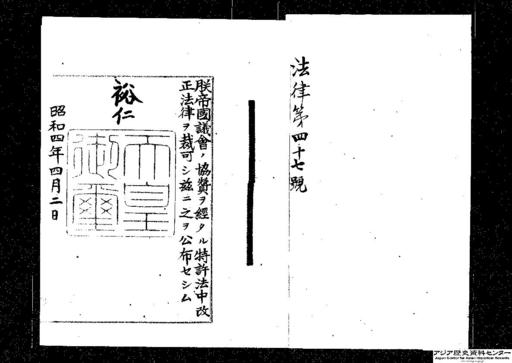 法律第四十七號
朕帝國議會ノ協贊ヲ經タル特許法中改
正法律ヲ裁可シ玆ニ之ヲ公布セシム
裕仁
天皇御璽
昭和四年四月二日
アジア歴史資料センター
Japan Center for Asian Historical Records